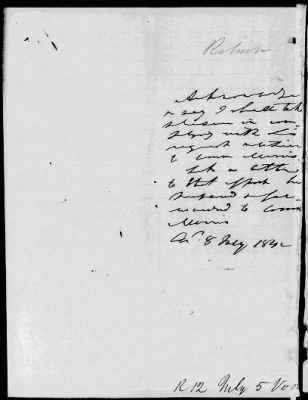 Acknowledge
& say I shall take
pleasure in com
plying with his
request
to Com. Morris.
Let a letter
to that effect be
prepared & for
warded to Com
Morris
8 July 1842
R 12 July 5